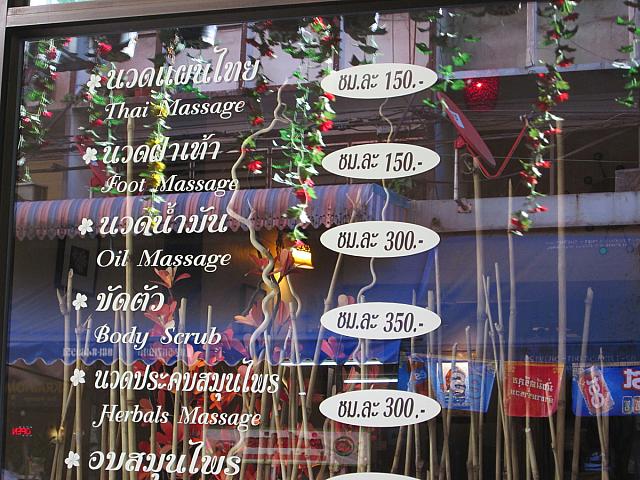 นวดแผนไทย ชม.ละ 150.-
Thai Massage
นวดฝ่าเท้า ชม.ละ 150.-
Foot Massage
นวดน้ำมัน ชม.ละ 300.-
Oil Massage
ขัดตัว ชม.ละ 350.-
Body Scrub
นวดประคบสมุนไพร ชม.ละ 300.-
Herbals Massage
อบสมุนไพร